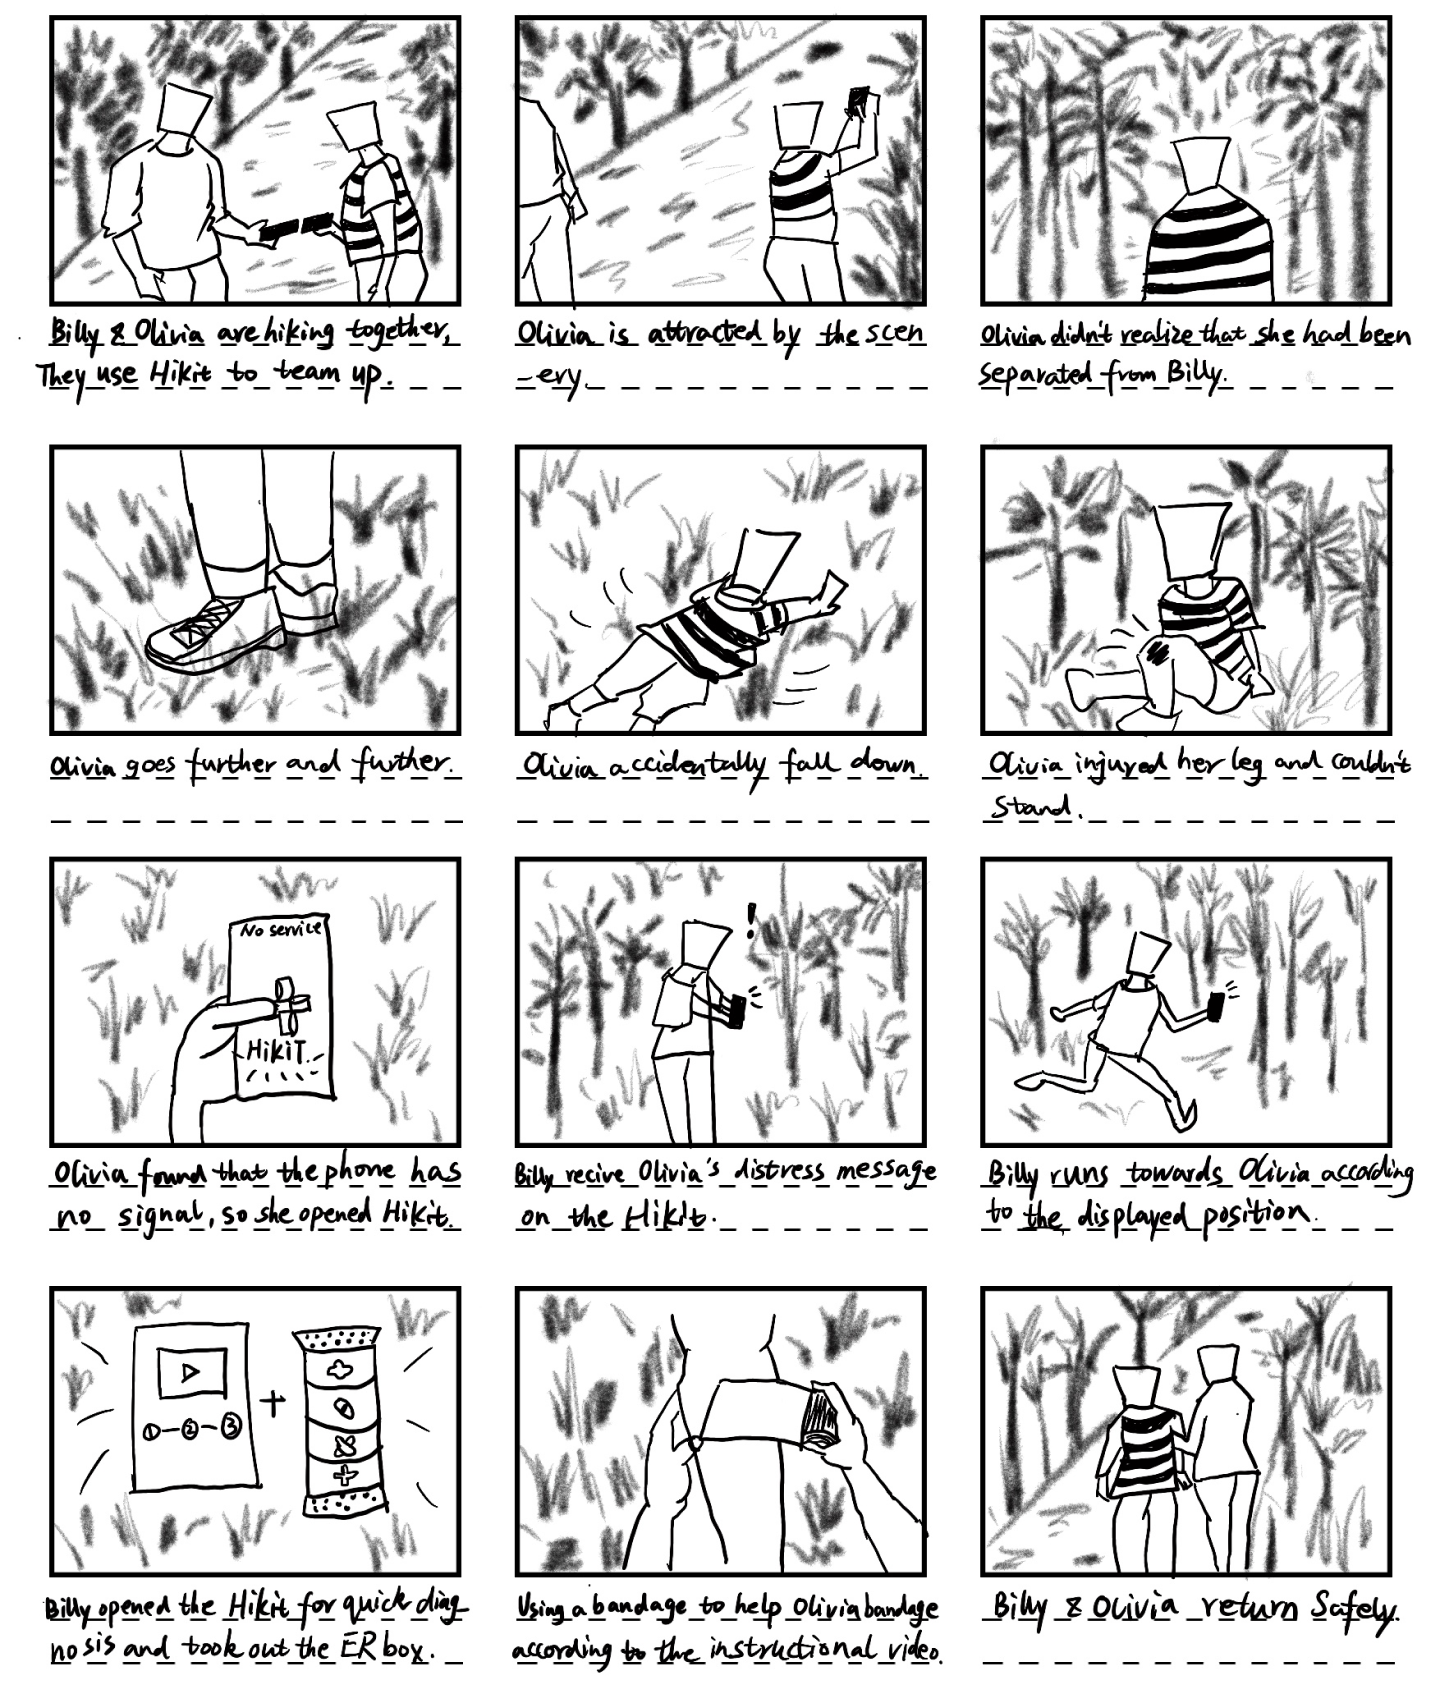 Billy & Olivia are hiking together,
They use Hikit to team up.
Olivia is attracted by the scen
-ery.
Olivia didn't realize that she had been
separated from Billy.
Olivia goes further and further.
Olivia accidentally fall down.
Olivia injured her leg and couldn't
Stand.
No service
HikiT
Olivia found that the phone has
no signal, so she opened Hikit.
!
Billy recive Olivia's distress message
on the Hikit.
Billy runs towards Olivia according
to the displayed position.
+
①-②-③
Billy opened the Hikit for quick diag
nosis and took out the ER box.
Using a bandage to help Olivia bandage
according to the instructional video.
Billy & Olivia return Safely.